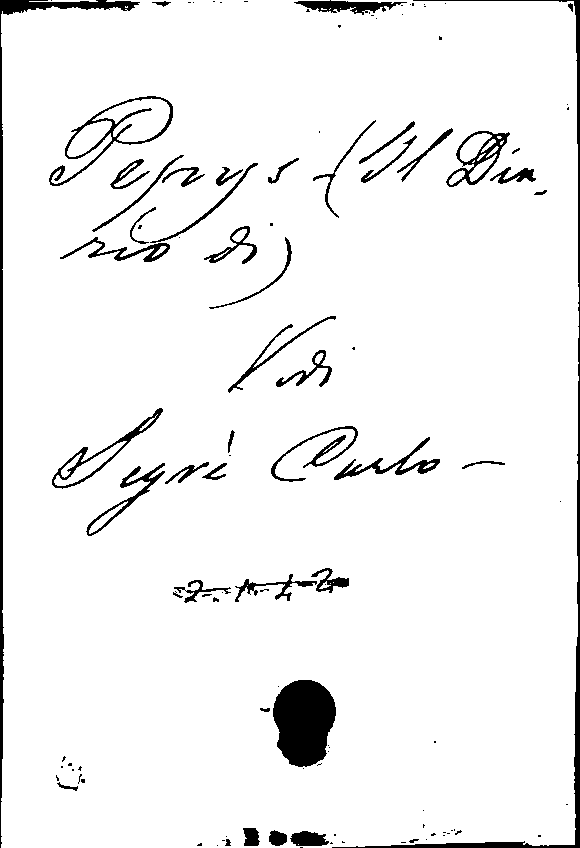 Pepys - (Il Dia-
rio di)
Vedi
Segrè Carlo -